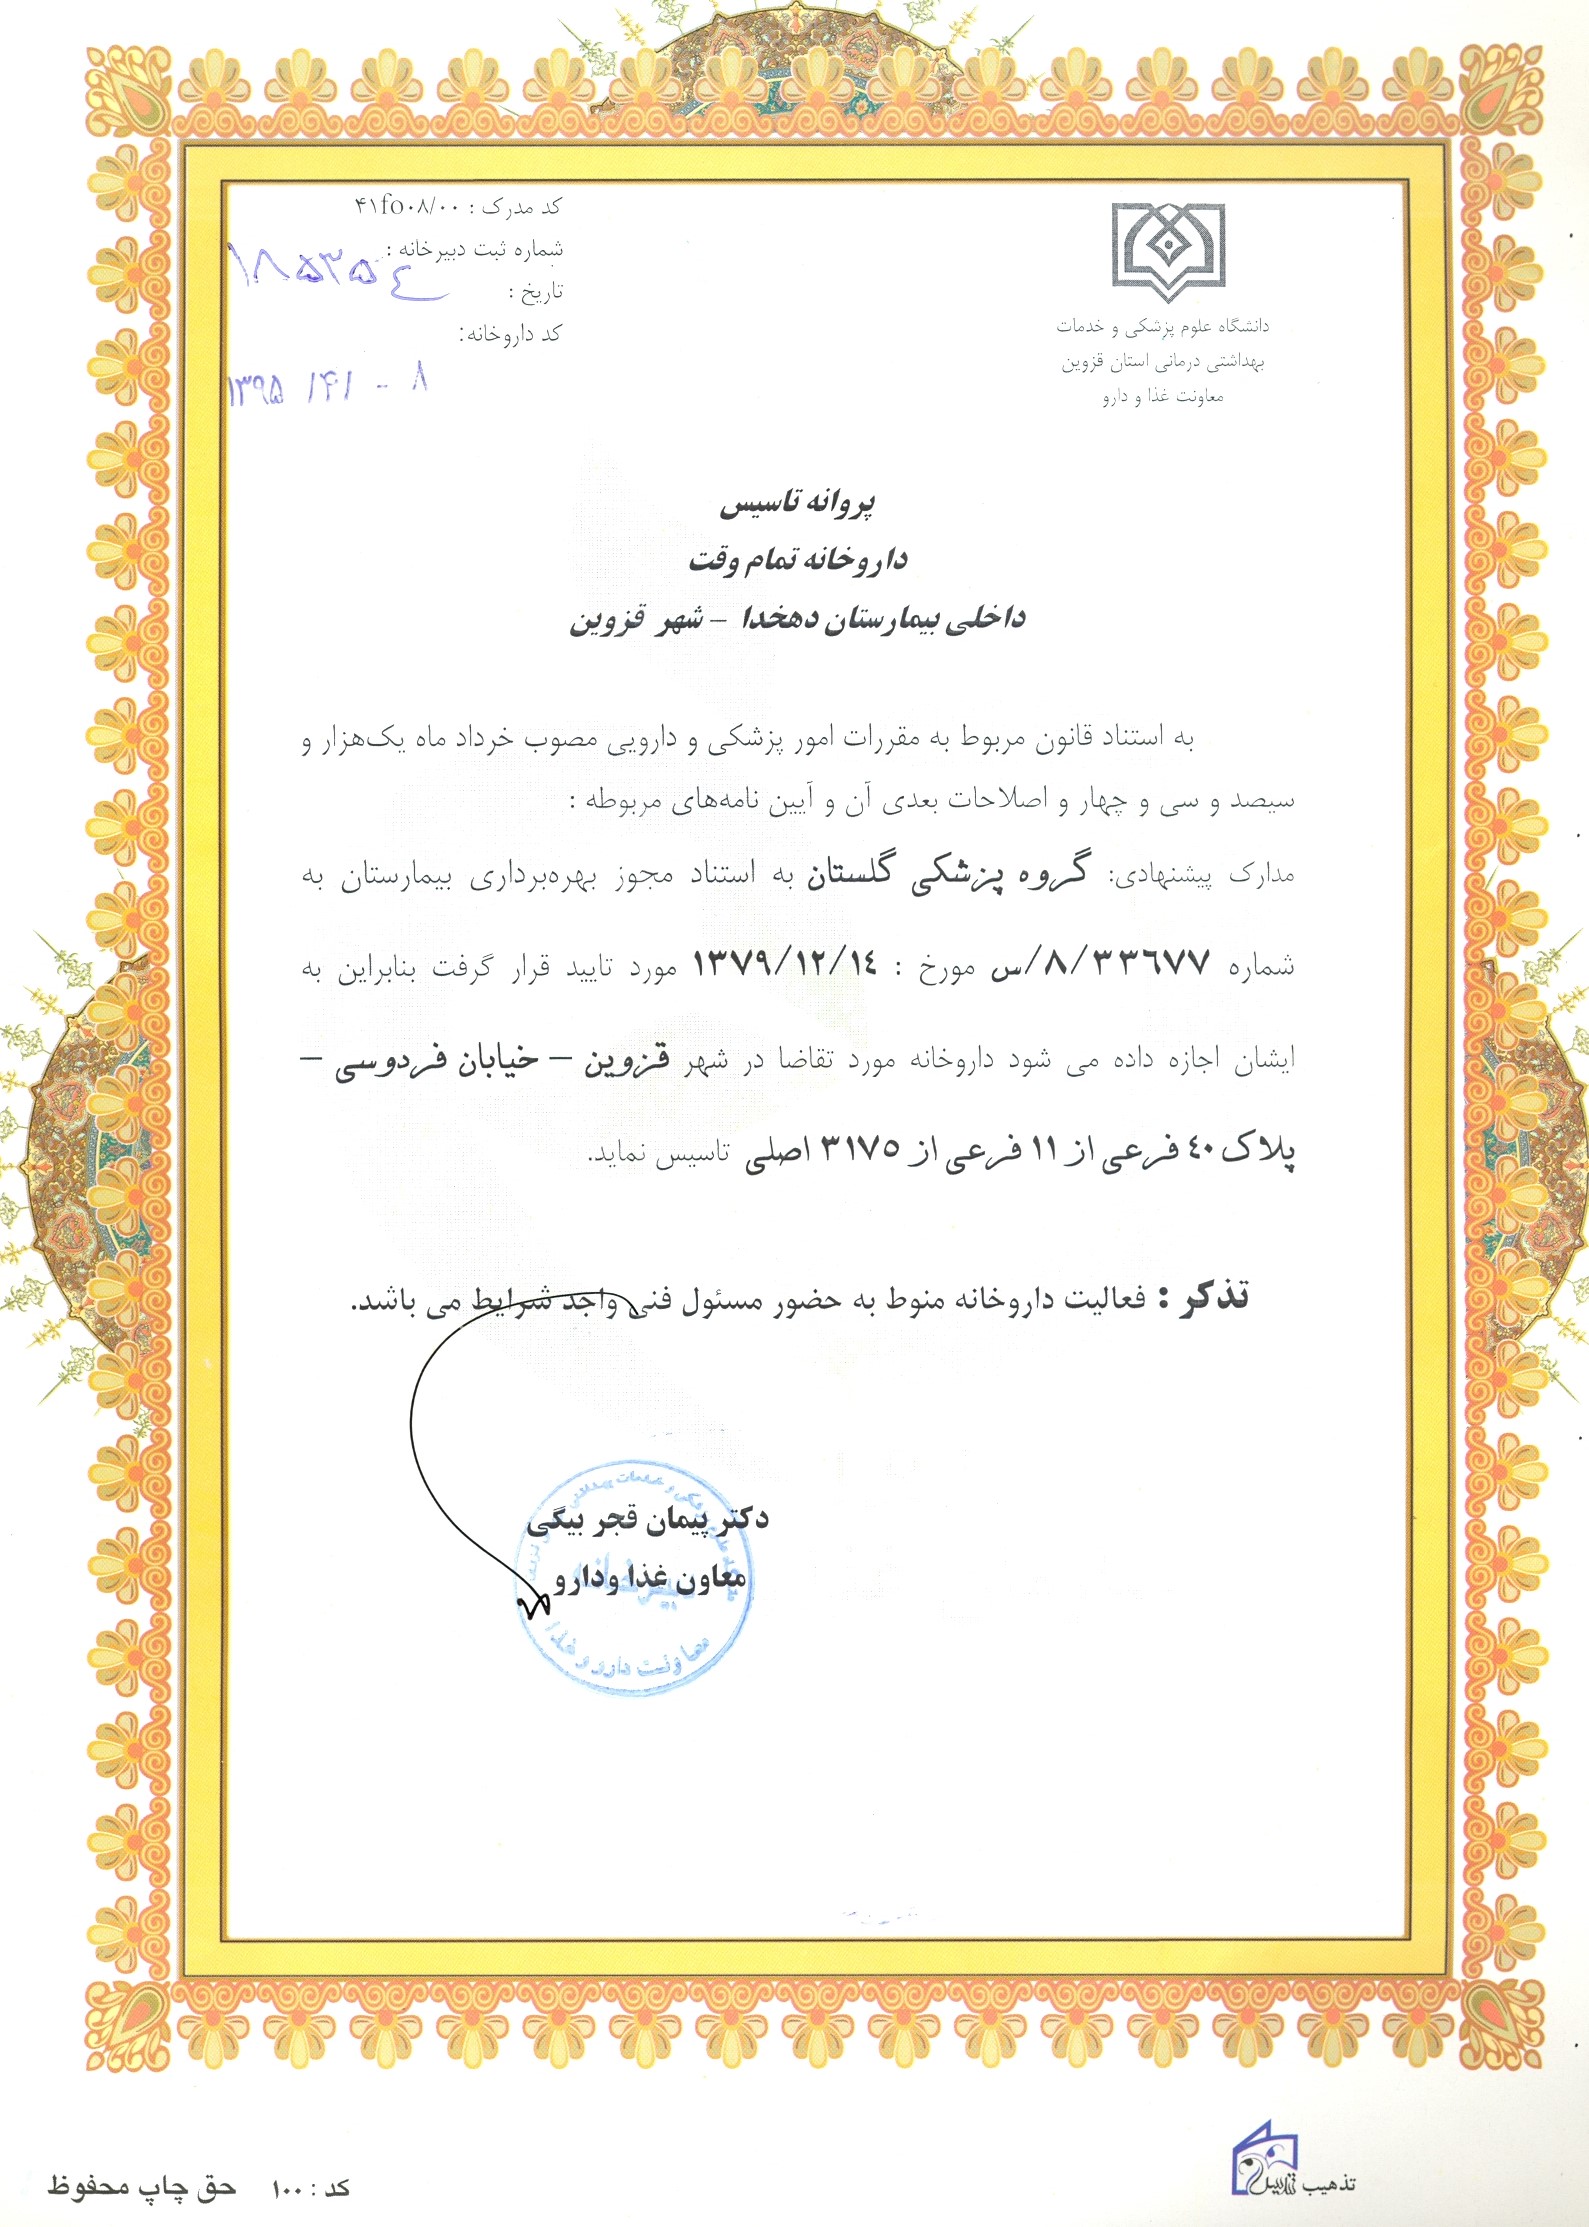 کد مدرک : ۴۱fo۰۸/۰۰
شماره ثبت دبیرخانه :
۱۸۵۳۵٤
تاریخ :
کد داروخانه:
دانشگاه علوم پزشکی و خدمات
بهداشتی درمانی استان قزوین
معاونت غذا و دارو
پروانه تاسیس
داروخانه تمام وقت
داخلی بیمارستان دهخدا – شهر قزوین
به استناد قانون مربوط به مقررات امور پزشکی و دارویی مصوب خرداد ماه یک‌هزار و
سیصد و سی و چهار و اصلاحات بعدی آن و آیین نامه‌های مربوطه :
مدارک پیشنهادی: گروه پزشکی گلستان به استناد مجوز بهره‌برداری بیمارستان به
شماره ۸/۳۳٦۷۷/س مورخ : ۱۳۷۹/۱۲/۱٤ مورد تایید قرار گرفت بنابراین به
ایشان اجازه داده می شود داروخانه مورد تقاضا در شهر قزوین – خیابان فردوسی –
پلاک ٤۰ فرعی از ۱۱ فرعی از ۳۱۷۵ اصلی تاسیس نماید.
تذکر : فعالیت داروخانه منوط به حضور مسئول فنی واجد شرایط می باشد.
دکتر پیمان قجر بیگی
معاون غذا ودارو
معاونت دارو و غذا
تذهیب
کد : ۱۰۰ حق چاپ محفوظ